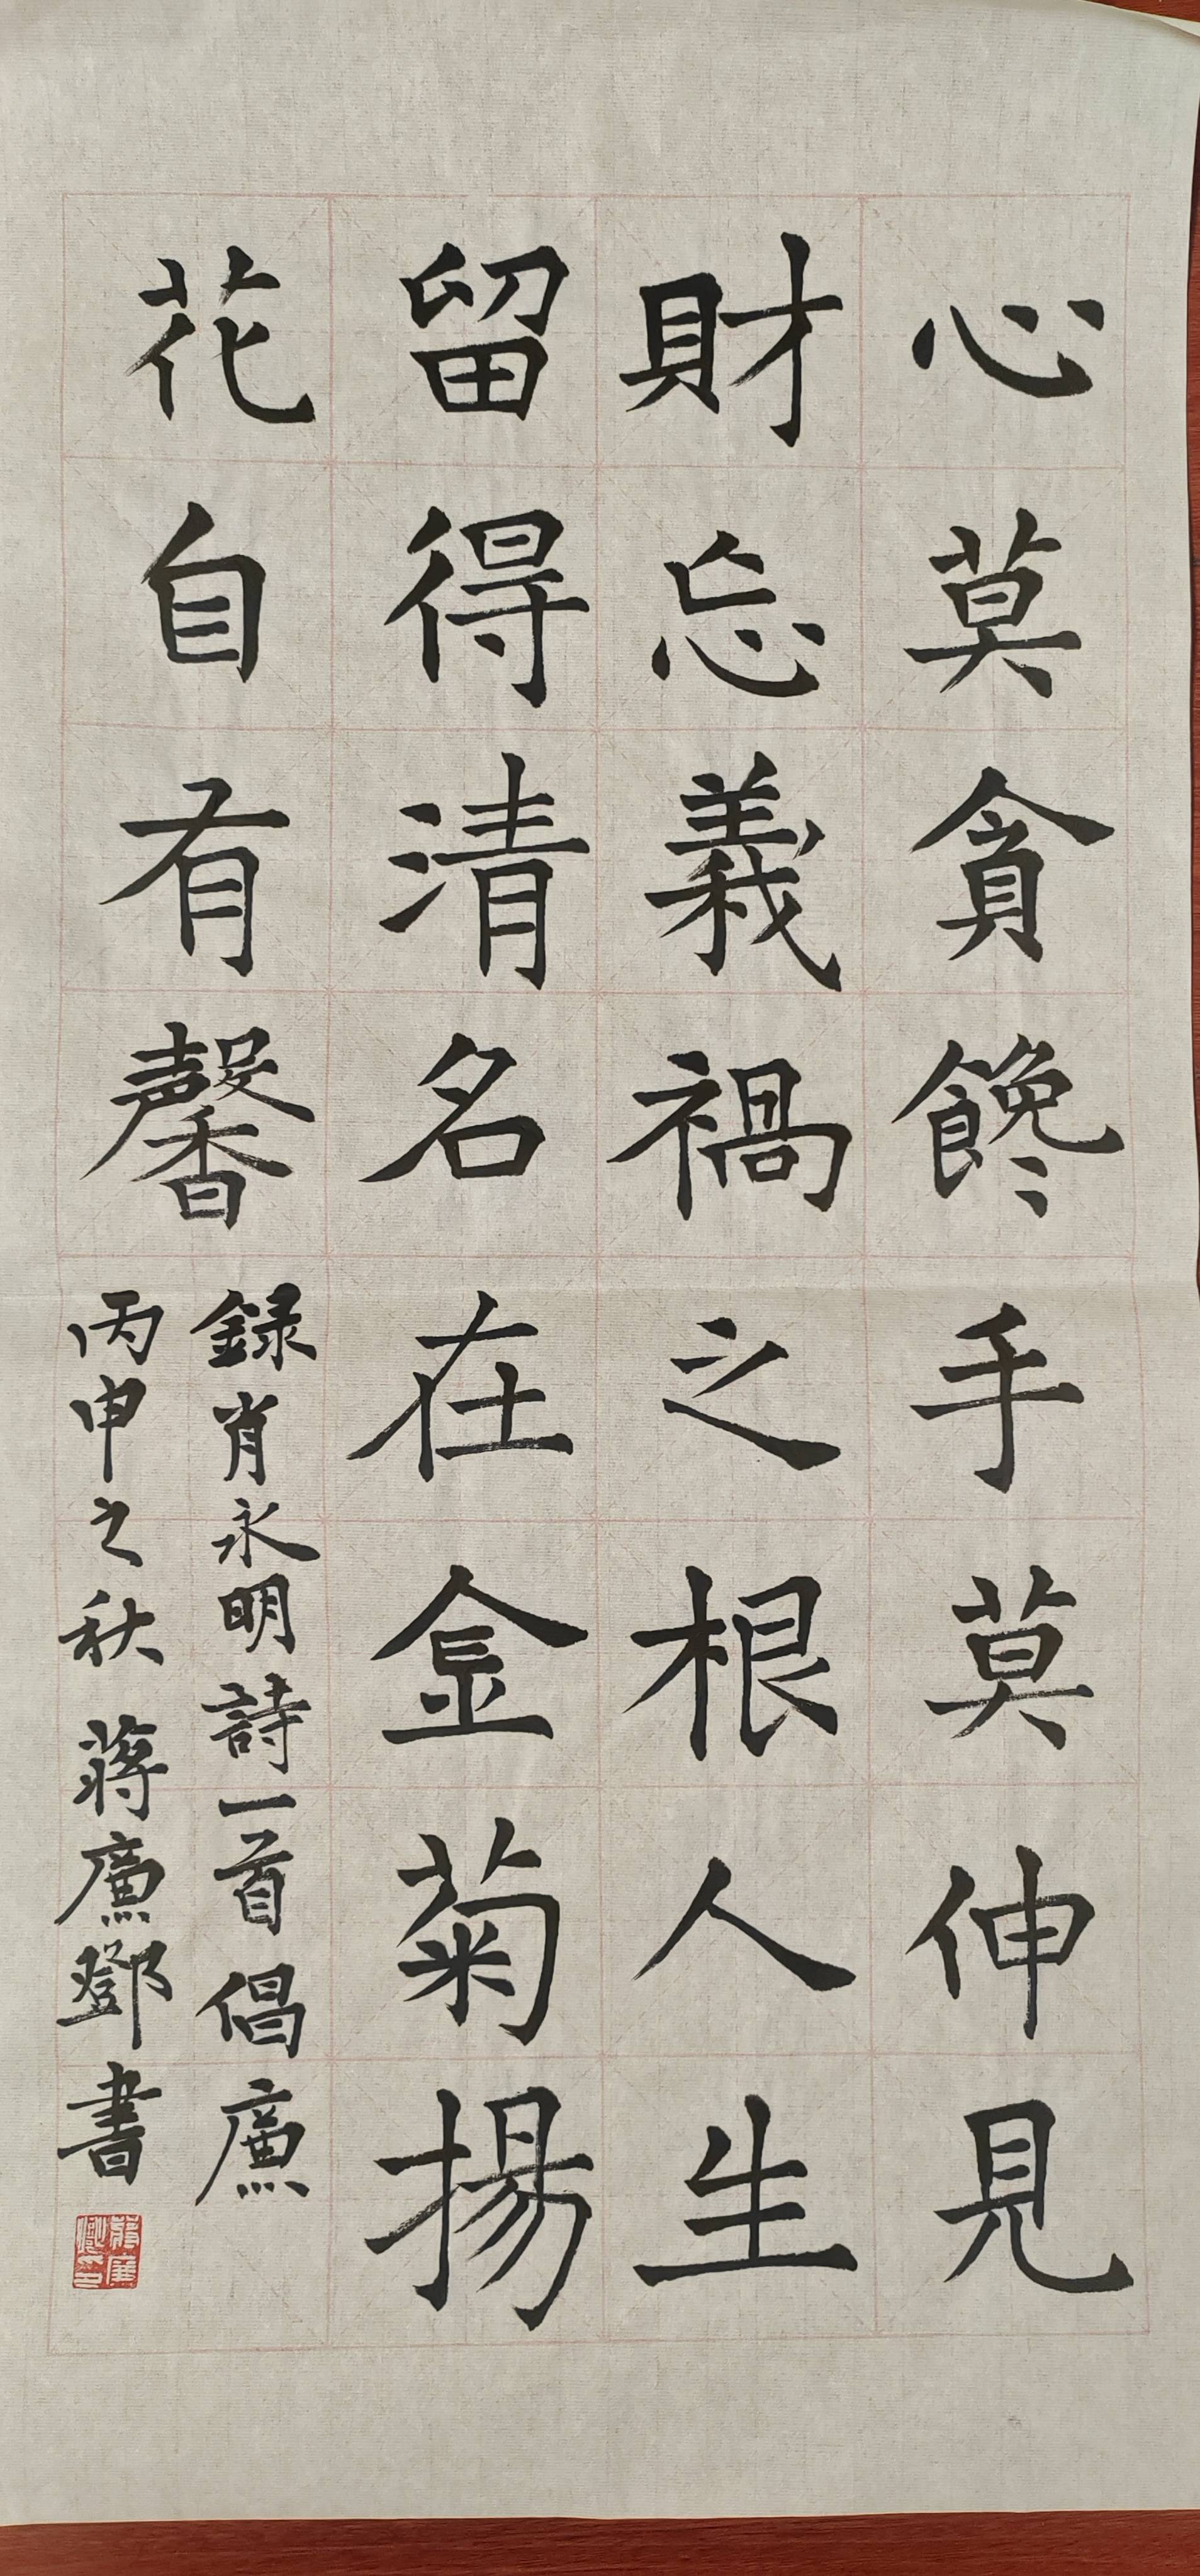 心莫貪馋手莫伸見
財忘義禍之根人生
留得清名在金菊揚
花自有馨
録肖永明詩一首倡廉
丙申之秋 蔣廉鄧書